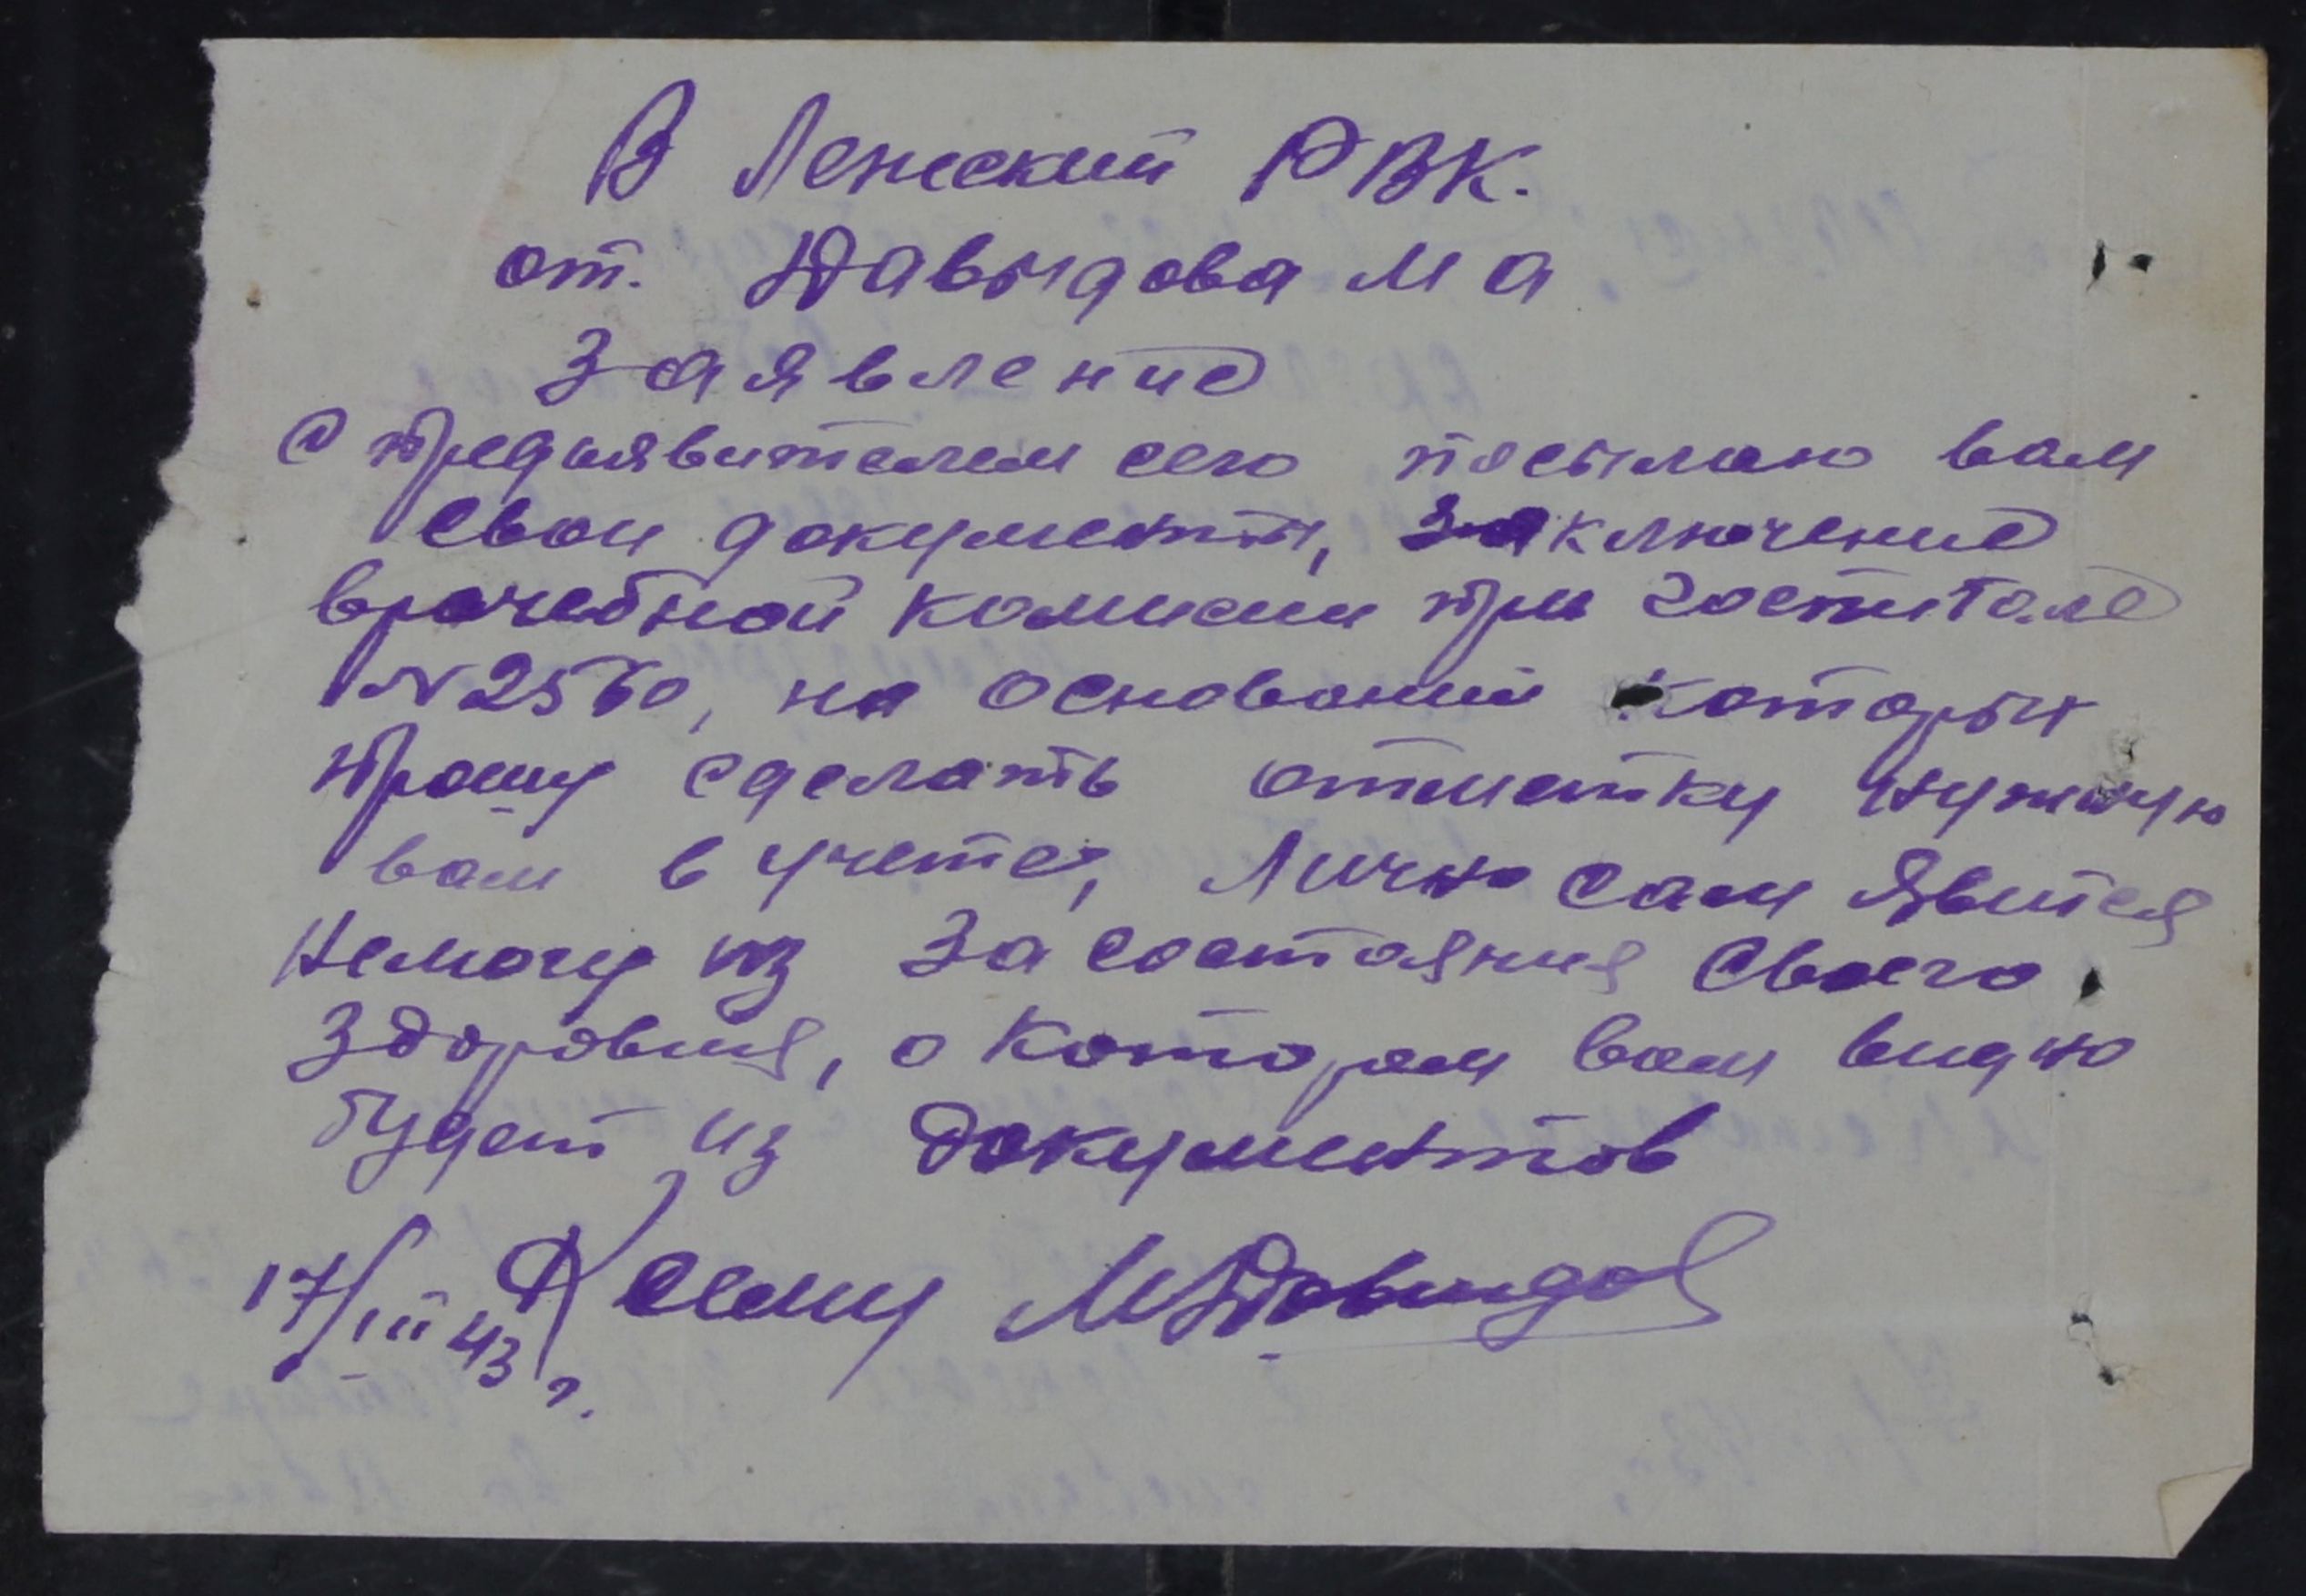 В Ленский РВК.
от. Давыдова М А
Заявление
С предъявителем сего посылаю вам
свои документы, заключение
врачебной комисии при госпитале
N 2560, на основании которых
прошу сделать отметку нужную
вам в учете, Лично сам явится
немогу из за состояния своего
здоровия, о котором вам видно
будет из документов
17/III 43 г. К сему МДавыдов